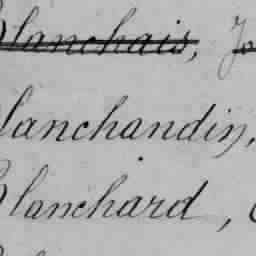 Blanchais, Jo
Blanchandin,
Blanchard,